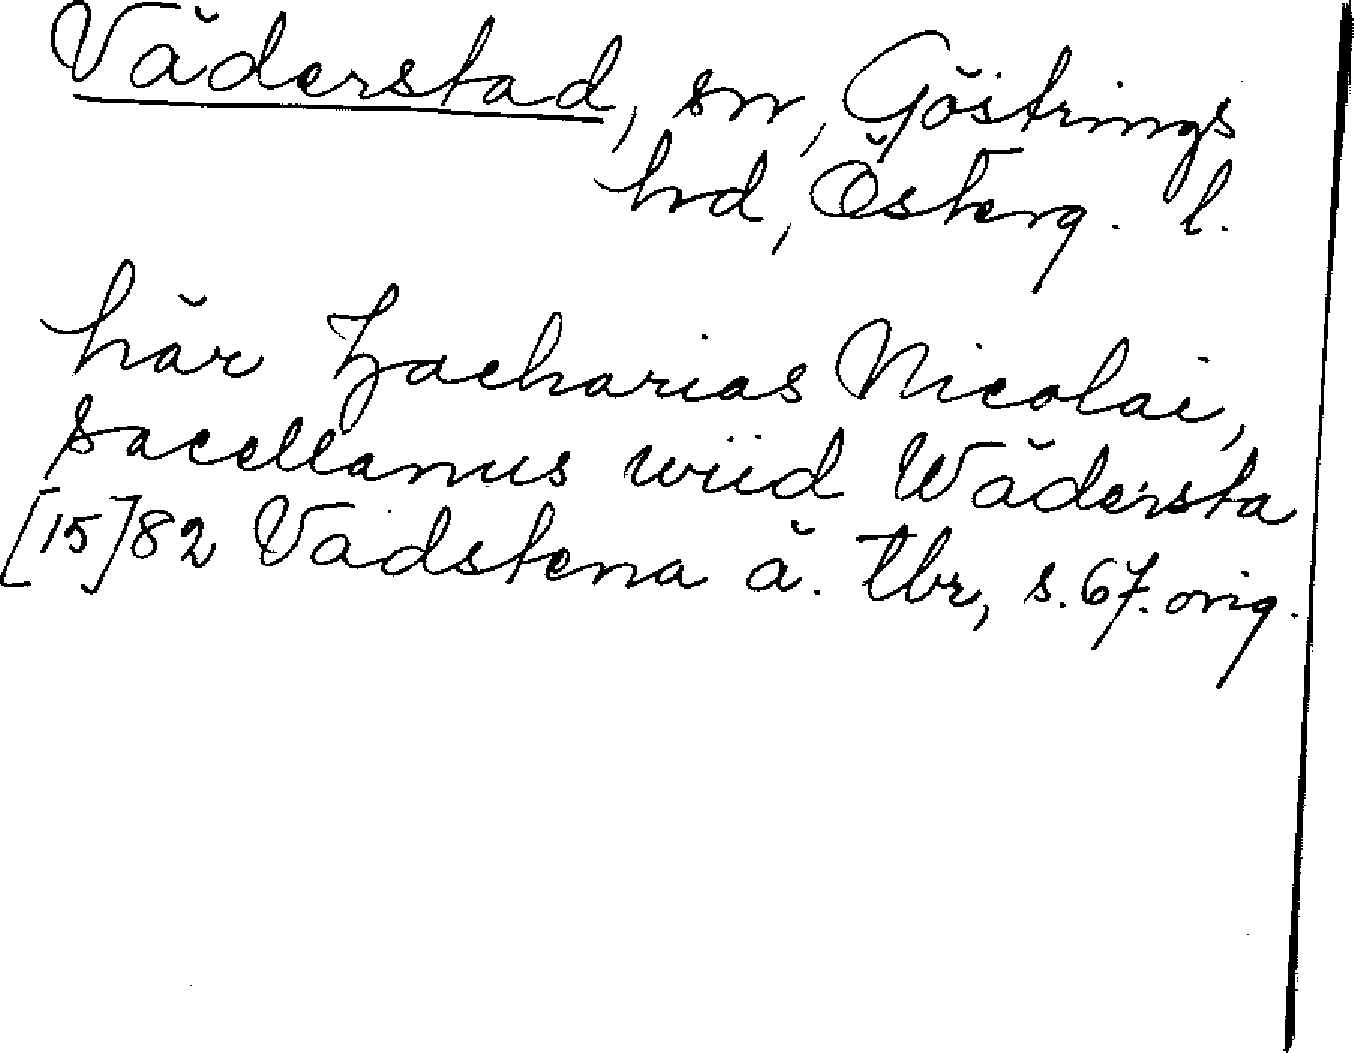 Väderstad, sn, Göstrings
hd, Österg. l.
här Zacharias Nicolai,
sacellanus wiid Wädersta
[15]82 Vadstena ä. tbr, s. 67. orig.